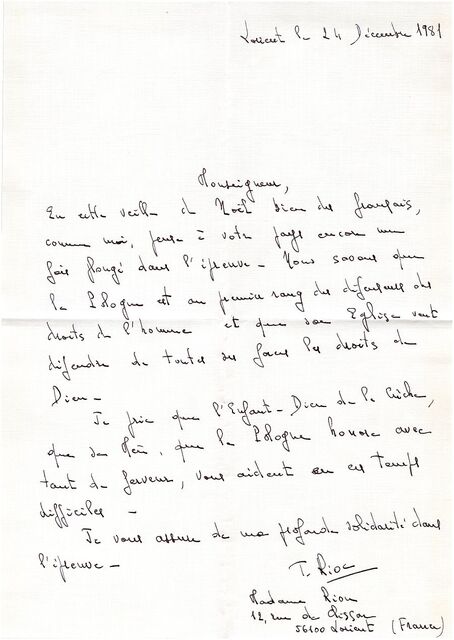 Lorient le 24 Décembre 1981
Monseigneur,
En cette veille de Noël bien des français,
comme moi, pense à votre pays encore une
fois plongé dans l'épreuve - Nous savons que
la Pologne est au premier rang des défenseurs des
droits de l'homme et que son Eglise veut
défendre de toutes ses forces les droits de
Dieu -
Je prie que l'Enfant-Dieu de la Crèche,
que sa Mère, que la Pologne honore avec
tant de ferveur, vous aident en ces temps
difficiles -
Je vous assure de ma profonde solidarité dans
l'épreuve -
T. Riou
Madame Riou
12, rue de Clisson
56100 Lorient (France)